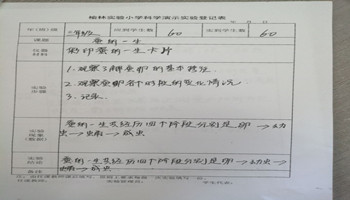 榆林实验小学科学演示实验登记表
年 月 日
年(班)级
应到学生数
60
实到学生数
60
课题
蚕的一生
仪器材料
彩印蚕的一生卡片
实验步骤
1.观察了解蚕卵的基本特征
2.观察蚕卵各个阶段的变化情况
3.记录
实验现象(数据)
蚕的一生共经历四个阶段分别是卵→幼
虫→蛹→成虫
实验结论
蚕的一生共经历四个阶段分别是卵→幼虫
→蛹→成虫
备注